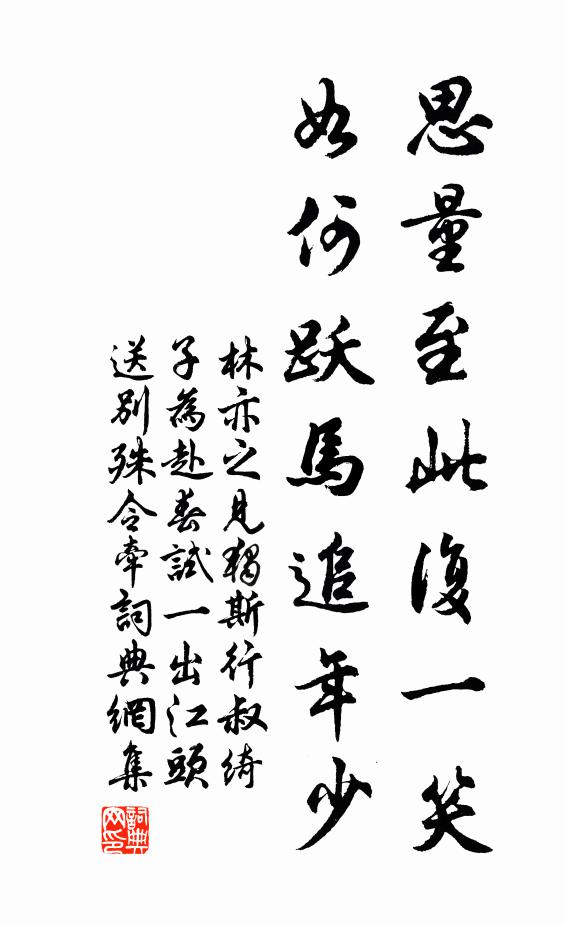 思量至此復一笑
如何跃馬追年少
林亦之見獨斯行叔綺
子為赴春試一出江頭
送別殊令牽詞典網集
詞典网印